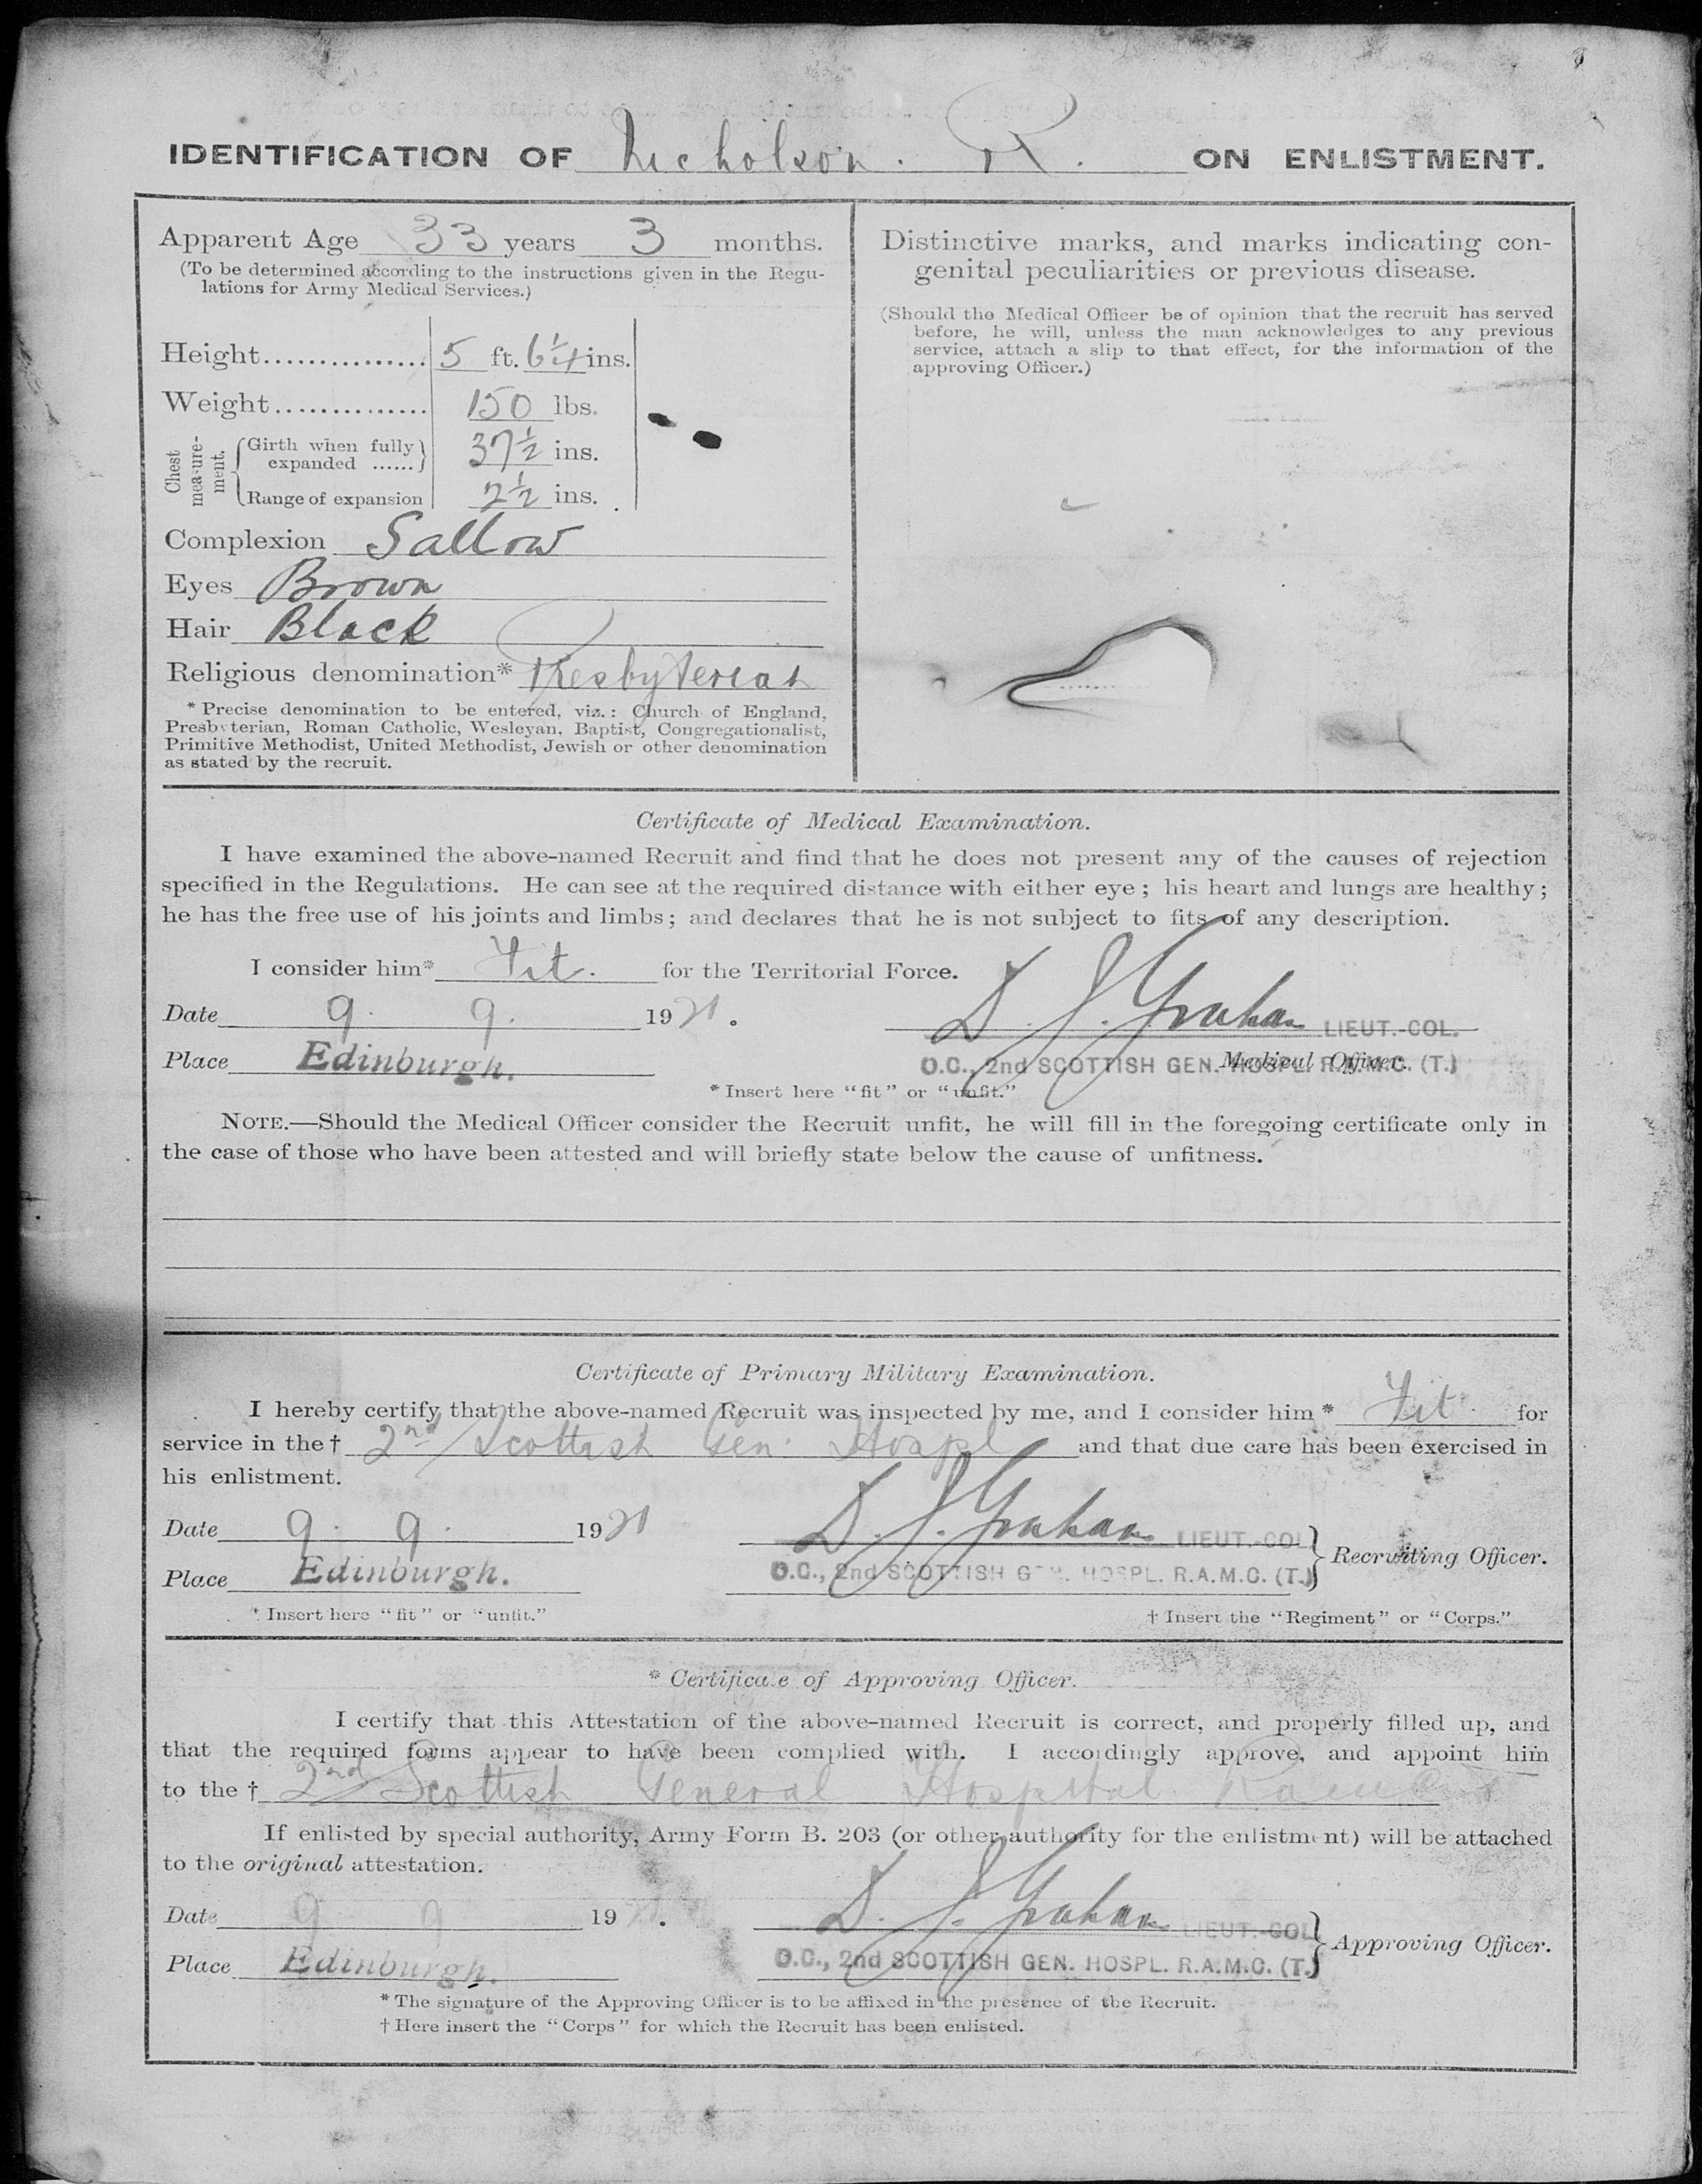 IDENTIFICATION OF Nicholson. R. ON ENLISTMENT.
Apparent Age 33 years 3 months.
(To be determined according to the instructions given in the Regu-
lations for Army Medical Services.)
Height............... 5 ft. 6¼ ins.
Weight.............. 150 lbs.
Chest mea-ure-ment.
Girth when fully expanded ...... 37½ ins.
Range of expansion 2½ ins.
Complexion Sallow
Eyes Brown
Hair Black
Religious denomination* Presbyterian
* Precise denomination to be entered, viz.: Church of England,
Presbyterian, Roman Catholic, Wesleyan, Baptist, Congregationalist,
Primitive Methodist, United Methodist, Jewish or other denomination
as stated by the recruit.
Distinctive marks, and marks indicating con-
genital peculiarities or previous disease.
(Should the Medical Officer be of opinion that the recruit has served
before, he will, unless the man acknowledges to any previous
service, attach a slip to that effect, for the information of the
approving Officer.)
Certificate of Medical Examination.
I have examined the above-named Recruit and find that he does not present any of the causes of rejection
specified in the Regulations. He can see at the required distance with either eye; his heart and lungs are healthy;
he has the free use of his joints and limbs; and declares that he is not subject to fits of any description.
I consider him* Fit. for the Territorial Force.
Date 9. 9. 1921. D. J. Graham LIEUT.-COL.
Place Edinburgh. O.C., 2nd SCOTTISH GEN. HOSPL. R.A.M.C. (T.) Medical Officer.
* Insert here "fit" or "unfit."
NOTE.—Should the Medical Officer consider the Recruit unfit, he will fill in the foregoing certificate only in
the case of those who have been attested and will briefly state below the cause of unfitness.
Certificate of Primary Military Examination.
I hereby certify that the above-named Recruit was inspected by me, and I consider him* Fit. for
service in the† 2nd Scottish Gen. Hospl and that due care has been exercised in
his enlistment.
Date 9. 9. 1921 D. J. Graham LIEUT.-COL
Place Edinburgh. O.C., 2nd SCOTTISH GEN. HOSPL. R.A.M.C. (T.) Recruiting Officer.
* Insert here "fit" or "unfit." † Insert the "Regiment" or "Corps."
* Certificate of Approving Officer.
I certify that this Attestation of the above-named Recruit is correct, and properly filled up, and
that the required forms appear to have been complied with. I accordingly approve, and appoint him
to the † 2nd Scottish General Hospital R.A.M.C.
If enlisted by special authority, Army Form B. 203 (or other authority for the enlistment) will be attached
to the original attestation.
Date 9 9 1921. D. J. Graham LIEUT.-COL
Place Edinburgh. O.C., 2nd SCOTTISH GEN. HOSPL. R.A.M.C. (T.) Approving Officer.
* The signature of the Approving Officer is to be affixed in the presence of the Recruit.
† Here insert the "Corps" for which the Recruit has been enlisted.